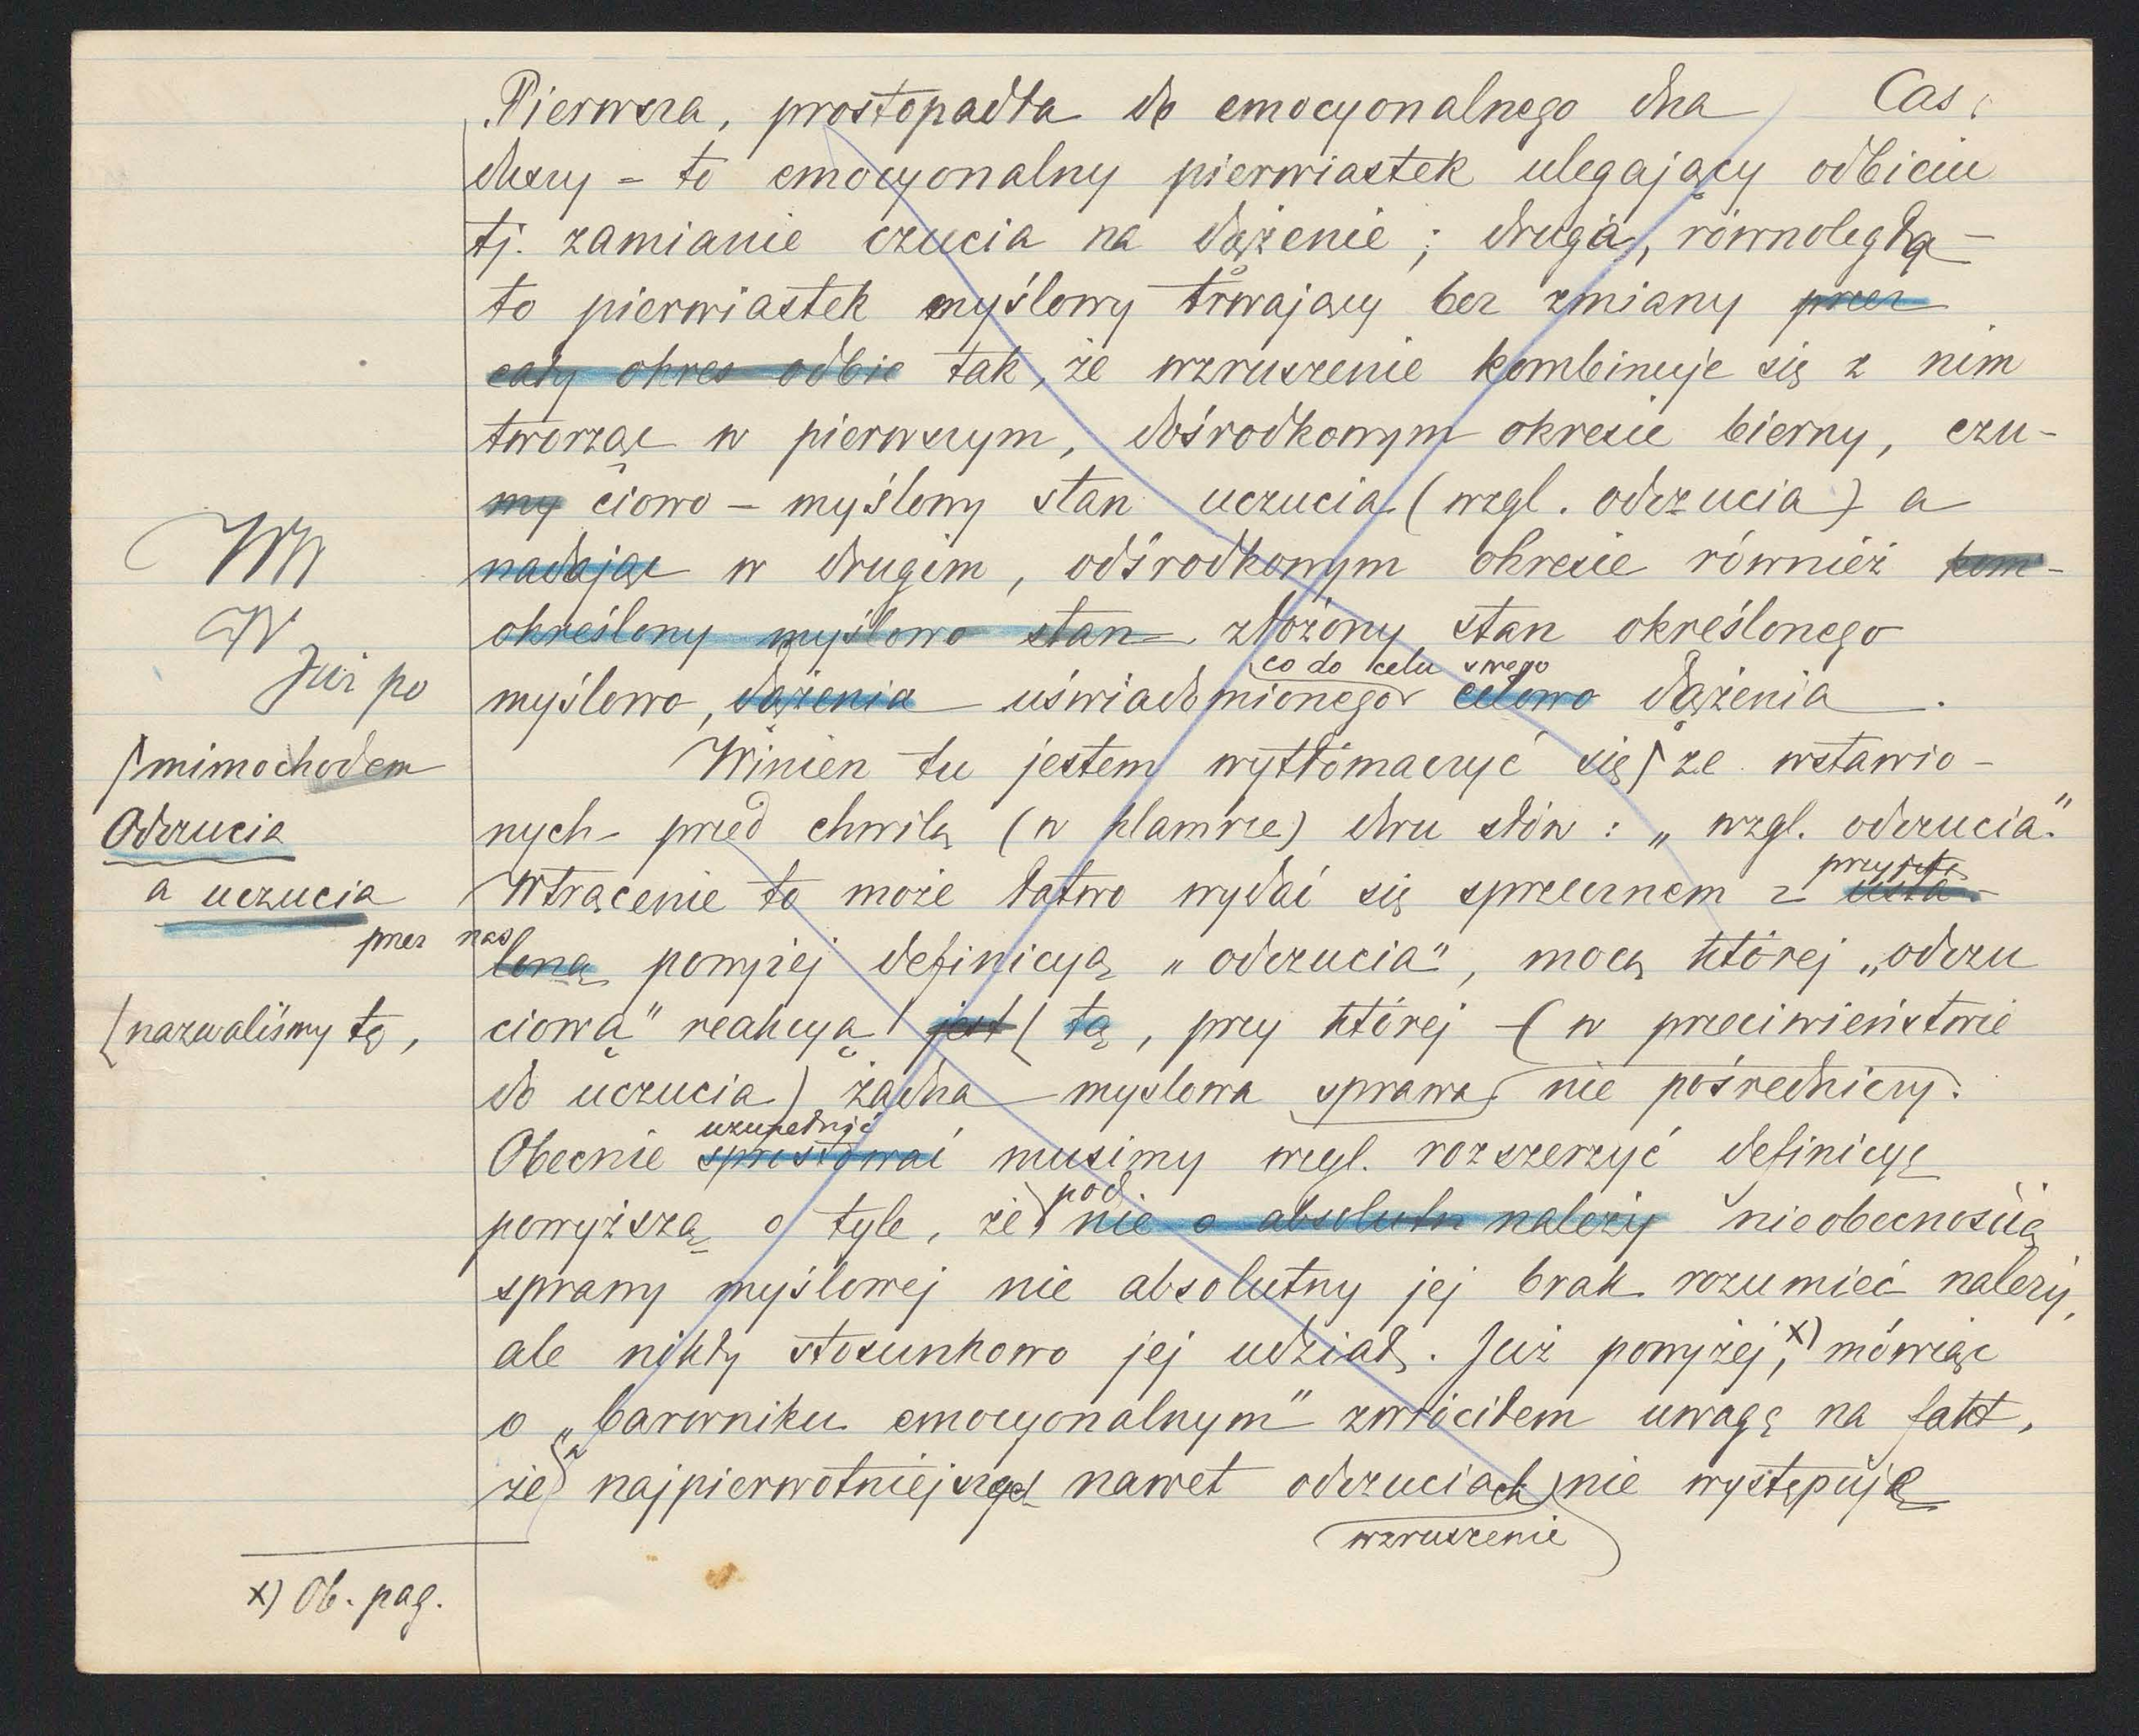 Pierwsza, prostopadła do emocyonalnego dna Cas
duszy - to emocyonalny pierwiastek ulegający odbiciu
tj. zamianie czucia na dążenie; druga, równoległa -
to pierwiastek myślowy trwający bez zmiany przez
cały okres odbic tak, że wzruszenie kombinuje się z nim
tworząc w pierwszym, dośrodkowym okresie bierny, czu-
my ciowo - myślowy stan uczucia (wzgl. odczucia) a
nadając w drugim, odśrodkowym okresie również kom-
określony myślowo stan złożony stan określonego
co do celu swego
myślowo, dążenia uświadomionego celowo dążenia.
Już po
Winien tu jestem wytłómaczyć się ze wstawio-
mimochodem
nych przed chwilą (w klamrze) dwu słów: „wzgl. odczucia."
Odczucia
a uczucia
Wtrącenie to może łatwo wydać się sprzecznem z usta-
przyjętą
przez nas
loną powyżej definicyą „odczucia", mocą której „odczu
ciową" reakcyą jest tą, przy której - (w przeciwieństwie
[nazwaliśmy tę,
do uczucia) żadna myslowa sprawa nie pośredniczy.
uzupełnić
Obecnie sprostować musimy wzgl. rozszerzyć definicyę
pod
powyższą o tyle, że nie o absolutn należy nieobecnością
sprawy myślowej nie absolutny jej brak rozumieć należy,
ale nikły stosunkowo jej udział. Już powyżej,x) mówiąc
o „barwniku emocyonalnym" zwróciłem uwagę na fakt,
że w najpierwotniejszych nawet odczuciach nie występuje
wzruszenie
x) Ob. pag.